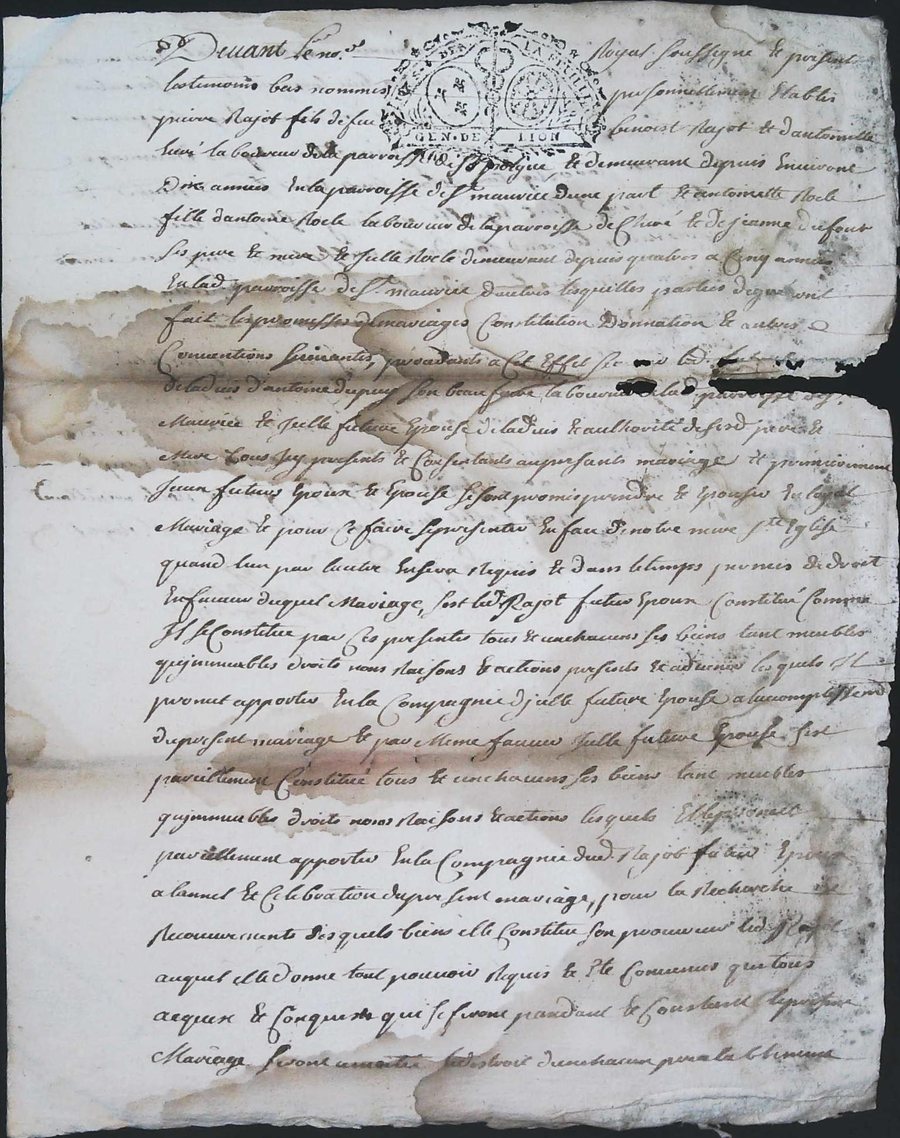 Devant le no.re Royal soussigné & present
les temoins bas nommes personnellement Etablis
pierre Rajot fils de feu benoist Rajot & dantoinette
laboureur de la parroisse de & demeurant depuis Environt
Dix annees En la parroisse de St maurice dune part & antoinette Rocle
fille dantoine Rocle laboureur de la parroisse de & de jeanne dufour
ses pere & mere & jcelle Rocle demeurant depuis quatres a Cinq annees
En lad. parroisse de St maurice dautre lesquelles parties de gre ont
fait les promesses de mariages Constitution Donnation & autres
Conventions suivantes, procedants a Cet Effet
de ladvis d'antoine dupuy son beau frere laboureur de lad. parroisse de St
Maurice & jcelle future Epouse de ladvis & authorité de sesd. pere &
Mere tous jcy presents & Consentants au presents mariage & premierement
jceux futurs Epoux & Epouse se sont promis prendre & Epouser En loyal
Mariage & pour Ce faire se presenter En face de notre mere Ste Eglise
quand lun par lautre En sera Requis & dans le temps permis de droit
En faveur duquel Mariage, sest led. Rajot futur Epoux Constitué Comme
Il se Constitue par Ces presentes tous & un chacuns ses biens tant meubles
qu'jmmeubles droits noms Raisons & actions presents & advenir lesquels Il
promet apporter En la Compagnie d'jcelle future Epouse a laccomplissement
du present mariage & par Meme faveur jcelle future Epouse sest
pareillement Constitué tous & un chacuns ses biens tant meubles
qu'jmmeubles droits noms Raisons & actions lesquels Elle promet
pareillement apporter En la Compagnie dud. Rajot futur Epoux
a lannel & Celebration du present mariage, pour la Recherche &
Recouvrements desquels biens elle Constitue son procureur led. Rajot
auquel elle donne tout pouvoir Requis & Ete Convenus que tous
acquis & Conquis qui se feront pandant & Constant le present
Mariage seront a moitié d'un chacun
GEN. DE LION